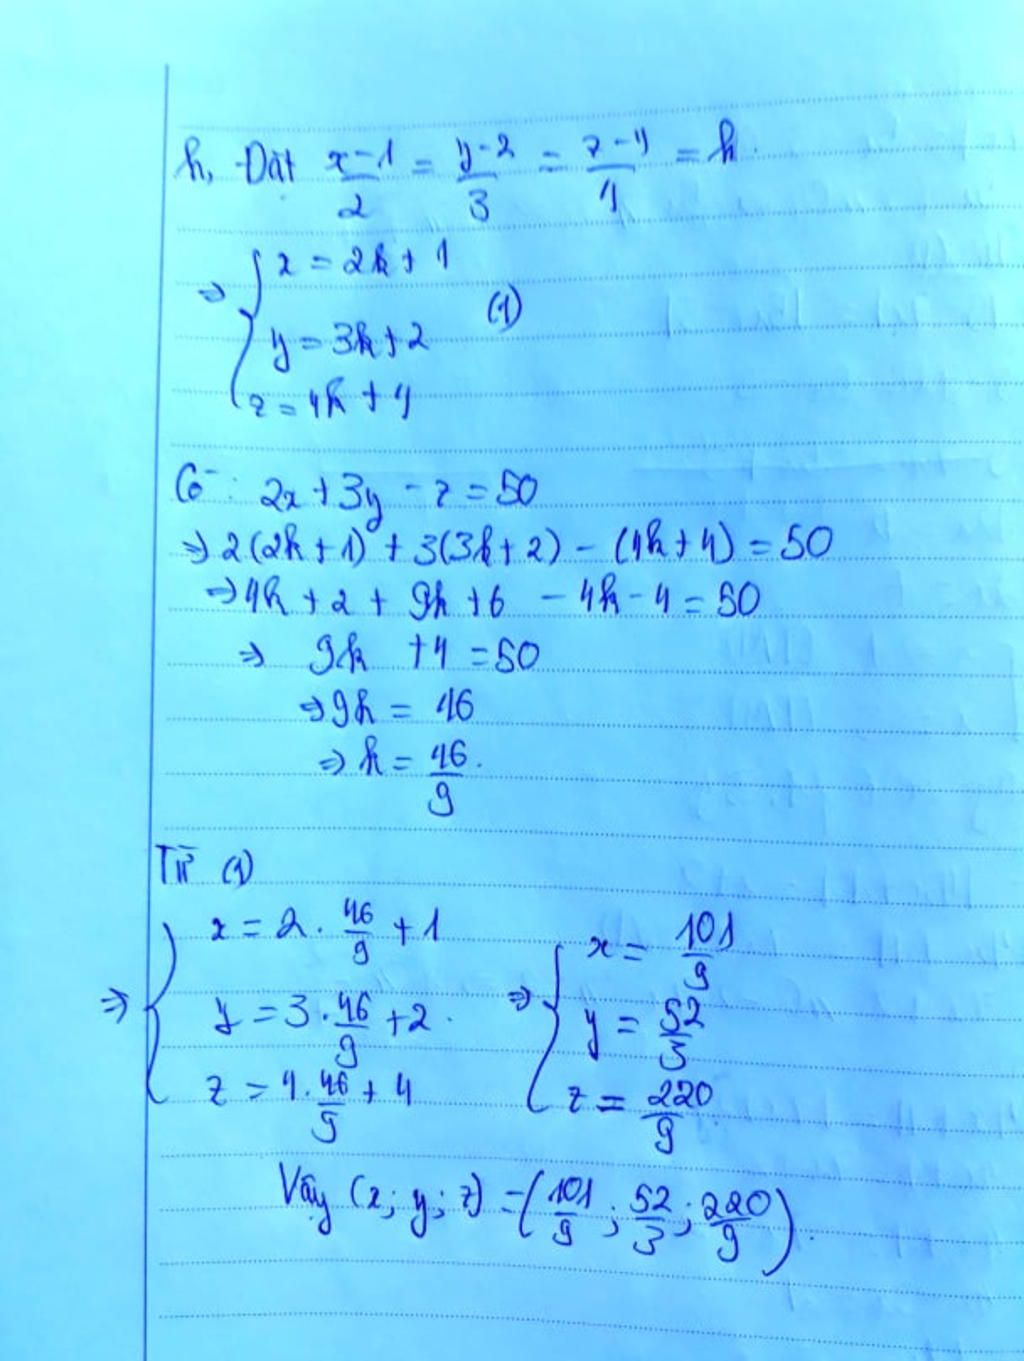 h, Đặt x-1/2 = y-2/3 = z-4/4 = k.
⇒ { x = 2k + 1
y = 3k + 2 (1)
z = 4k + 4
Có: 2x + 3y - z = 50
⇒ 2(2k + 1) + 3(3k + 2) - (4k + 4) = 50
⇒ 4k + 2 + 9k + 6 - 4k - 4 = 50
⇒ 9k + 4 = 50
⇒ 9k = 46
⇒ k = 46/9.
Từ (1)
⇒ { x = 2 . 46/9 + 1 ⇒ { x = 101/9
y = 3 . 46/9 + 2 . y = 52/3
z = 4 . 46/9 + 4 z = 220/9
Vậy (x; y; z) = (101/9; 52/3; 220/9).